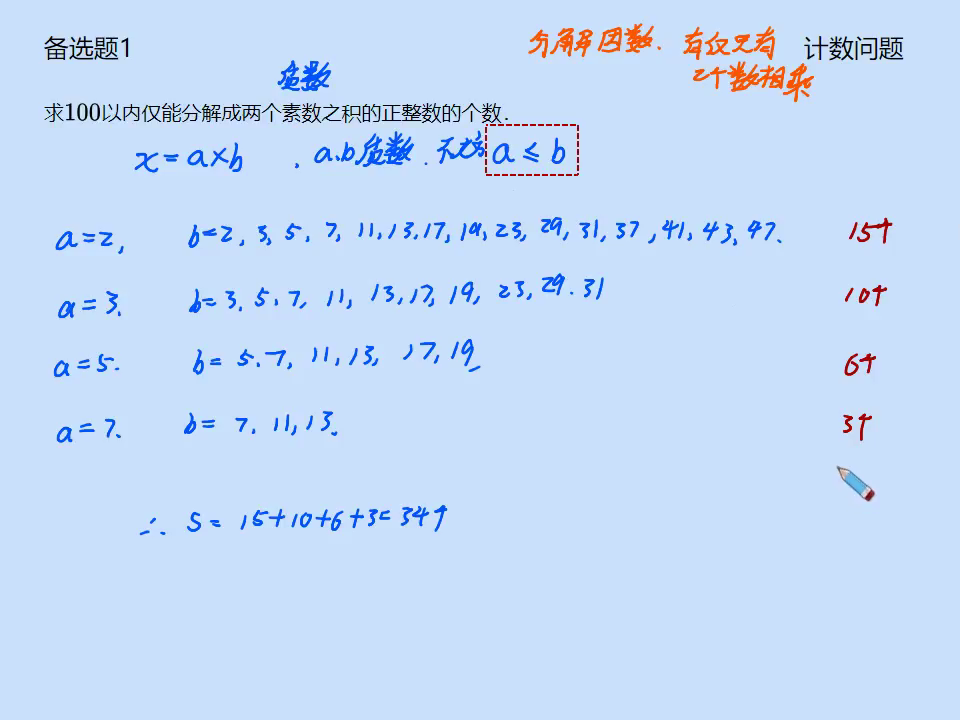 备选题1
分解质因数. 有仅只有
计数问题
质数
2个数相乘
求100以内仅能分解成两个素数之积的正整数的个数.
x = a×b , a.b 质数 . 不妨 a ≤ b
a=2, b=2, 3, 5, 7, 11, 13, 17, 19, 23, 29, 31, 37, 41, 43, 47. 15个
a=3. b=3. 5. 7, 11, 13, 17, 19, 23, 29. 31 10个
a=5. b= 5.7, 11, 13, 17, 19 6个
a=7. b= 7. 11, 13. 3个
∴ S= 15+10+6+3=34个